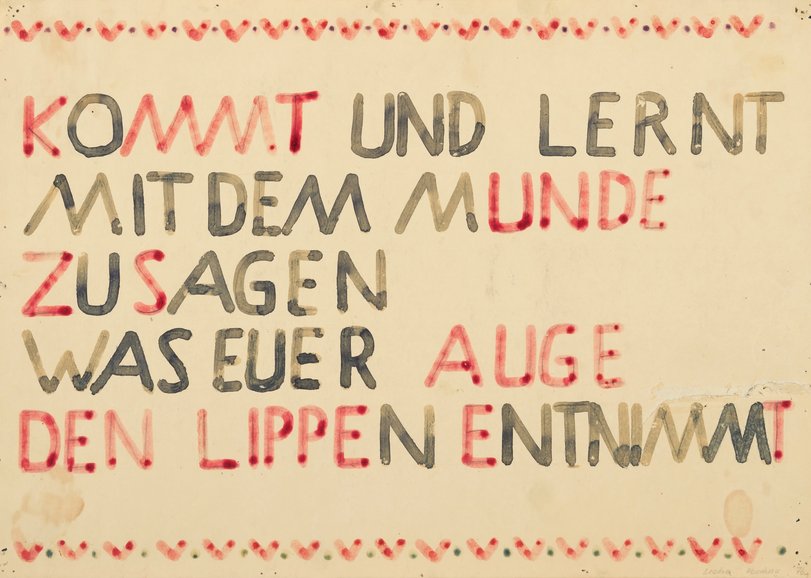 KOMMT UND LERNT
MIT DEM MUNDE
ZU SAGEN
WAS EUER AUGE
DEN LIPPEN ENTNIMMT